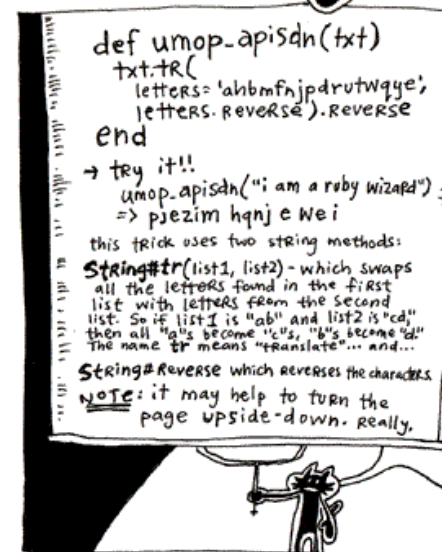 def umop_apisdn(txt)
txt.tr(
letters= 'ahbmfnjpdrutwqye',
letters.reverse ).reverse
end
→ try it!!
umop_apisdn("i am a ruby wizard")
=> pjezim hqnj e wei
this trick uses two string methods:
String#tr(list1, list2) - which swaps
all the letters found in the first
list with letters from the second
list. So if list1 is "ab" and list2 is "cd,"
then all "a"s become "c"s, "b"s become "d."
The name tr means "translate"... and...
String#Reverse which reverses the characters.
NOTE: it may help to turn the
page upside-down. Really.